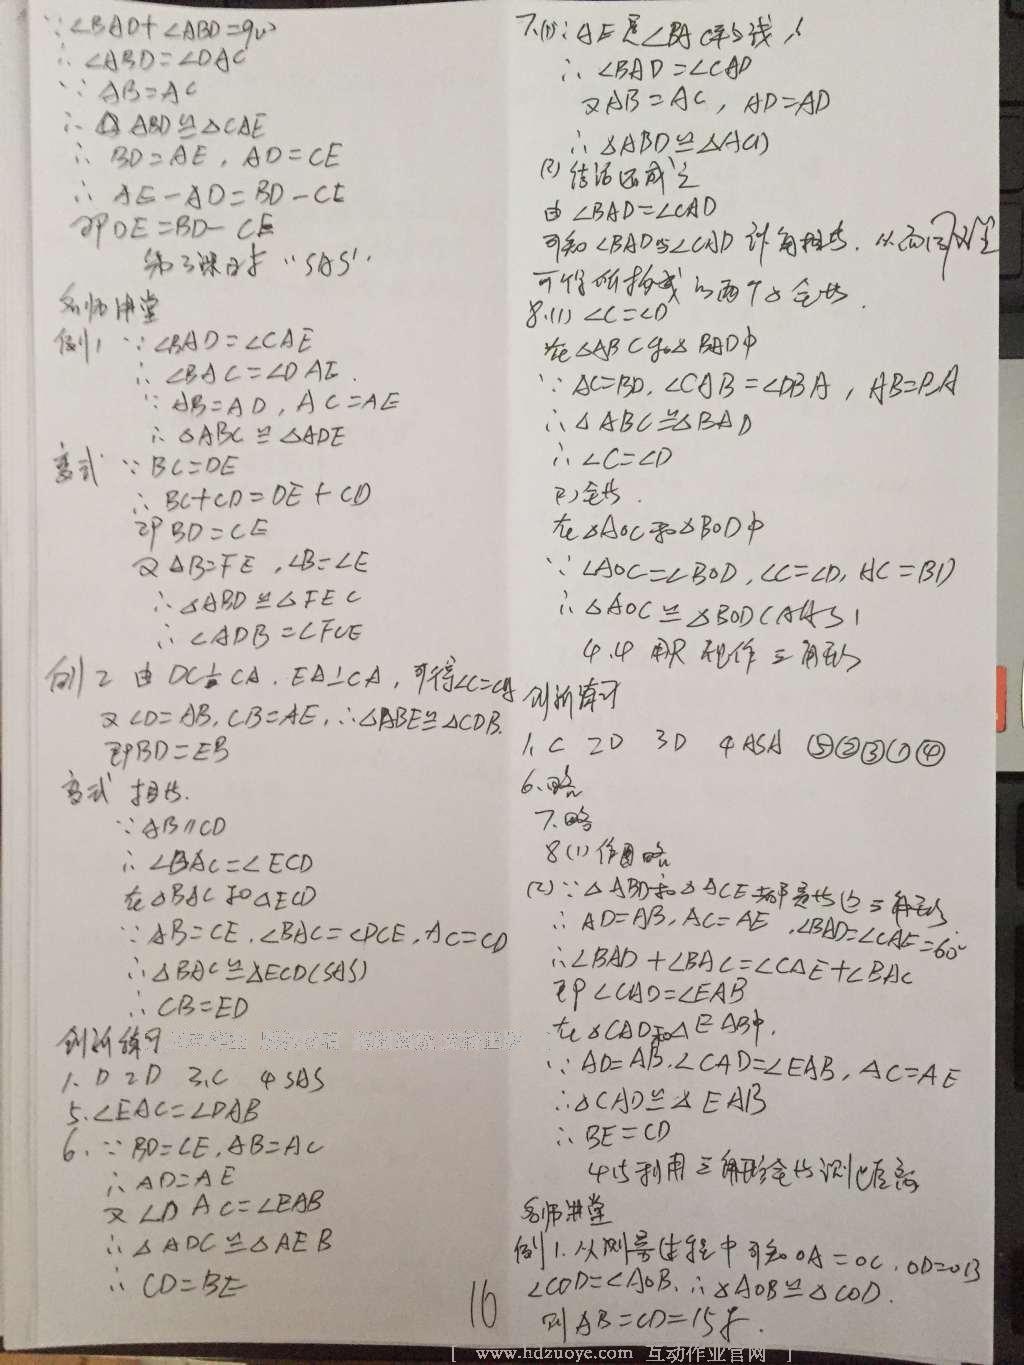 ∵∠BAD+∠ABD=90°
∴∠ABD=∠DAC
∵AB=AC
∴△ABD≌△CAE
∴BD=AE,AD=CE
∴AE-AD=BD-CE
即DE=BD-CE
第3课时 "SAS"
名师讲堂
例1 ∵∠BAD=∠CAE
∴∠BAC=∠DAE.
∵AB=AD,AC=AE
∴△ABC≌△ADE
变式 ∵BC=DE
∴BC+CD=DE+CD
即BD=CE
又AB=FE,∠B=∠E
∴△ABD≌△FEC
∴∠ADB=∠FCE
例2 由DC⊥CA.EA⊥CA,可得∠C=∠A
又CD=AB,CB=AE,∴△ABE≌△CDB.
即BD=EB
变式 相等.
∵AB∥CD
∴∠BAC=∠ECD
在△BAC和△ECD
∵AB=CE,∠BAC=∠DCE,AC=CD
∴△BAC≌△ECD(SAS)
∴CB=ED
创新练习
1.D 2D 3.C 4SAS
5.∠EAC=∠DAB
6.∵BD=CE,AB=AC
∴AD=AE
又∠DAC=∠EAB
∴△ADC≌△AEB
∴CD=BE
16
7.(1)∵AE是∠BAC平分线
∴∠BAD=∠CAD
又AB=AC,AD=AD
∴△ABD≌△ACD
(2)结论还成立
由∠BAD=∠CAD
可知∠BAD与∠CAD补角相等.从而
可得所构成的两个△全等.
8.(1)∠C=∠D
在△ABC和△BAD中
∵AC=BD,∠CAB=∠DBA,AB=BA
∴△ABC≌△BAD
∴∠C=∠D
(2)全等.
在△AOC和△BOD中
∵∠AOC=∠BOD,∠C=∠D,AC=BD
∴△AOC≌△BOD(AAS)
4.4 用尺规作三角形
创新练习
1.C 2D 3D 4ASA ⑤②③①④
6.略
7.略
8(1)作图略
(2)∵△ABD和△ACE都是等边三角形
∴AD=AB,AC=AE,∠BAD=∠CAE=60°
∴∠BAD+∠BAC=∠CAE+∠BAC
即∠CAD=∠EAB
在△CAD和△EAB中.
∵AD=AB.∠CAD=∠EAB,AC=AE
∴△CAD≌△EAB
∴BE=CD
4.5利用三角形全等测距离
名师讲堂
例1.从测量过程中可知OA=OC,OD=OB
∠COD=∠AOB.∴△AOB≌△COD.
则AB=CD=15步.
[ www.hdzuoye.com 互动作业官网 ]